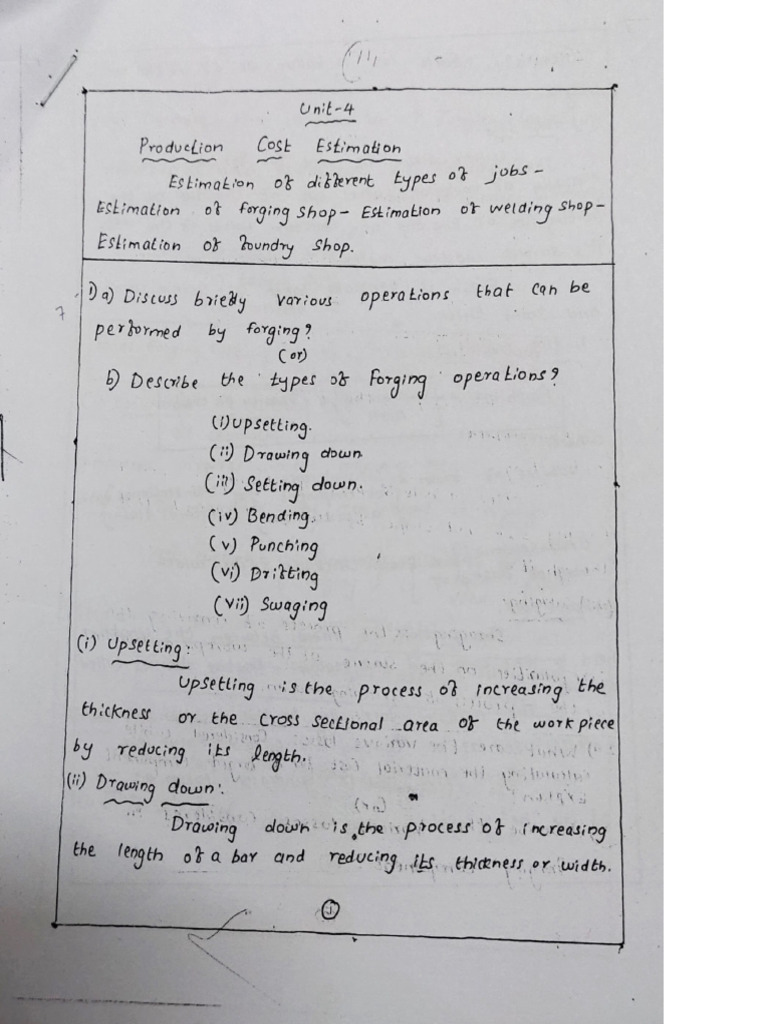 Unit-4
Production Cost Estimation
Estimation of different types of jobs -
Estimation of forging shop - Estimation of welding shop -
Estimation of foundry shop.
1) a) Discuss briefly various operations that can be
performed by forging?
(or)
b) Describe the types of Forging operations?
(i) Upsetting.
(ii) Drawing down
(iii) Setting down.
(iv) Bending.
(v) Punching
(vi) Drifting
(vii) Swaging
(i) Upsetting:
Upsetting is the process of increasing the
thickness or the cross sectional area of the work piece
by reducing its length.
(ii) Drawing down:
Drawing down is the process of increasing
the length of a bar and reducing its thickness or width.
1